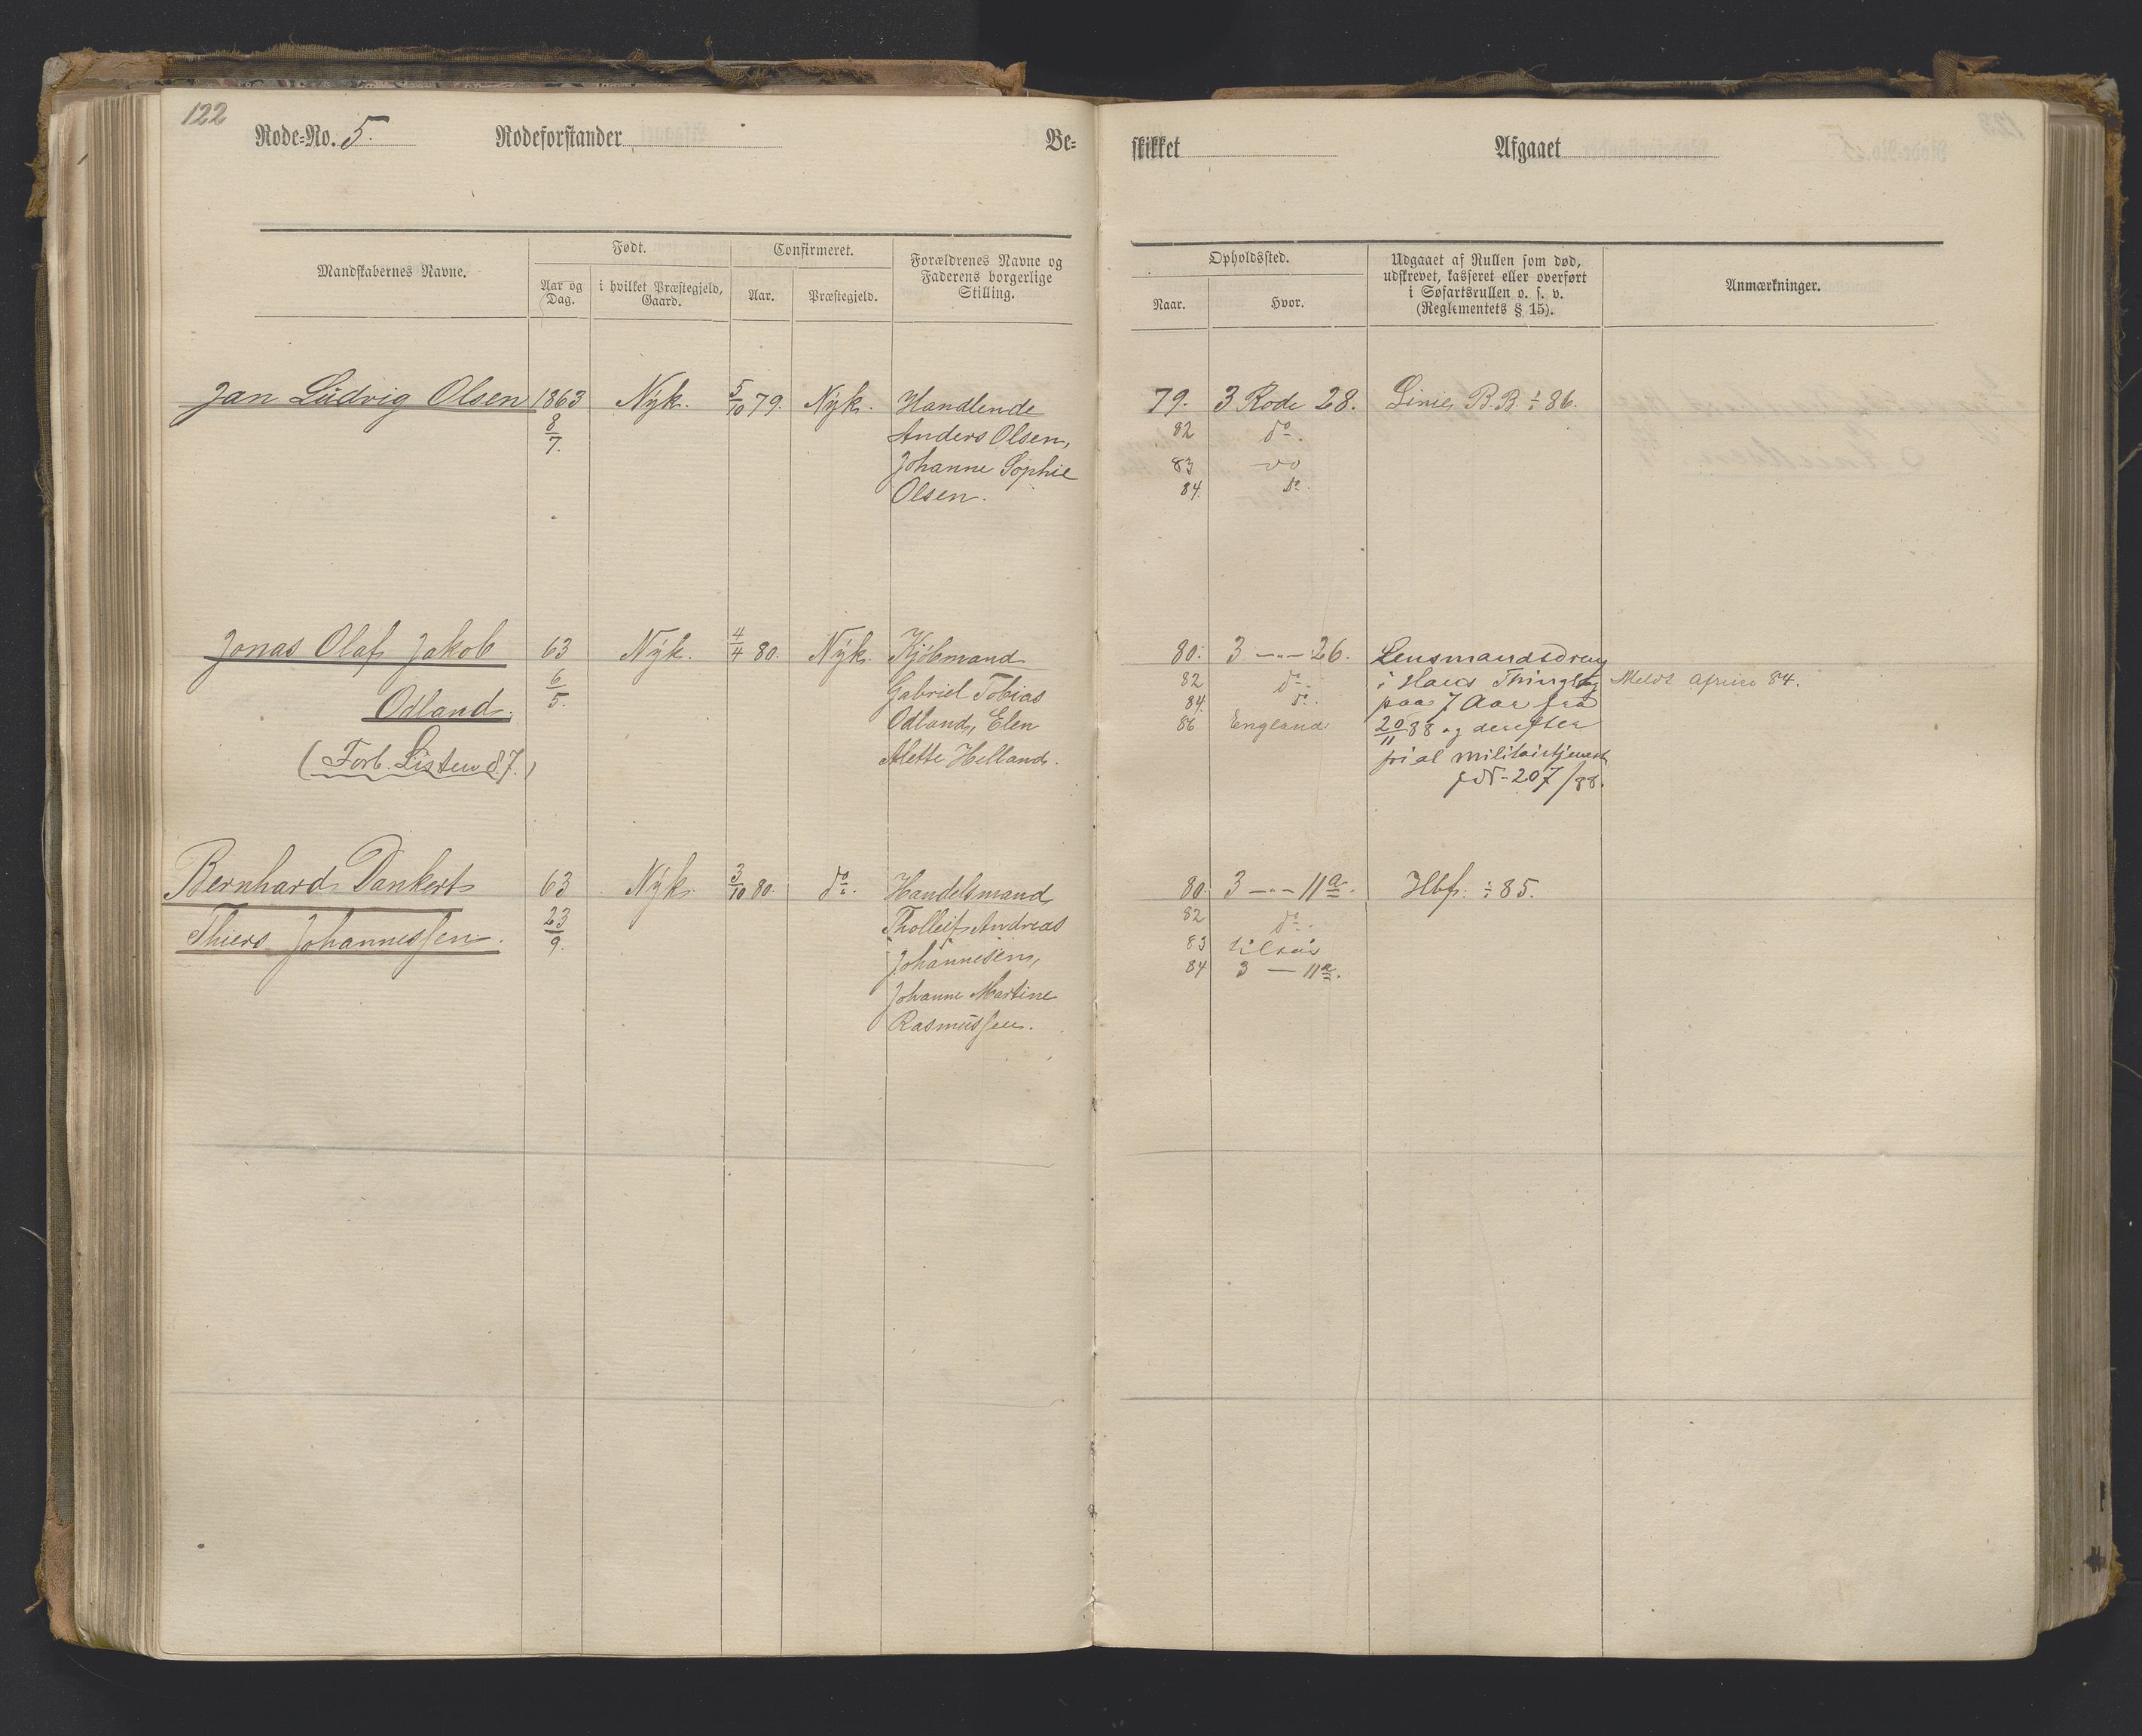 122
Rode-No. 5. Rodeforstander Be-
skikket Afgaaet
Mandskabernes Navne.
Født.
Aar og Dag.
i hvilket Præstegjeld, Gaard.
Confirmeret.
Aar.
Præstegjeld.
Forældrenes Navne og
Faderens borgerlige
Stilling.
Opholdssted.
Naar.
Hvor.
Udgaaet af Rullen som død,
udskrevet, kasseret eller overført
i Søfartsrullen o. s. v.
(Reglementets § 15).
Anmærkninger.
Jan Ludvig Olsen 1863 Nyk. 5/10 79. Nyk. Handlende 79. 3 Rode 28. Linie B.B. ÷ 86.
8/7. Anders Olsen, 82 do.
Johanne Sophie 83 do
Olsen. 84. do.
Jonas Olaf Jakob 63 Nyk. 4/4 80. Nyk. Kjøbmand 80. 3 -"- 26. Lensmandsdreng
6/5. Gabriel Tobias 82 do. i Thinglag Meldt 84.
Odland. 84. do. paa 7 Aar fra
Odland, Elen 86 England 20/11 88 og derefter
(Forb. Listen 87.) Alette Helland. fri al militairtjeneste
207/88.
Bernhard Dankert 63 Nyk. 3/10 80. do. Handelsmand 80. 3 -"- 11a. Hbf. ÷ 85.
Thiers Johannessen. 23/9. Tholleif Andreas 82 do.
Johannesen, 83 tilsøs
Johanne Martine 84 3 — 11a.
Rasmussen.